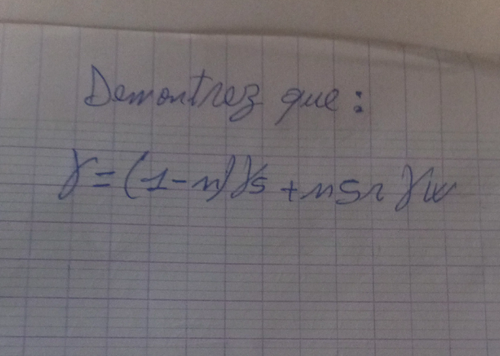 Demontrez que :
γ = (1-n)γs + nSr γw